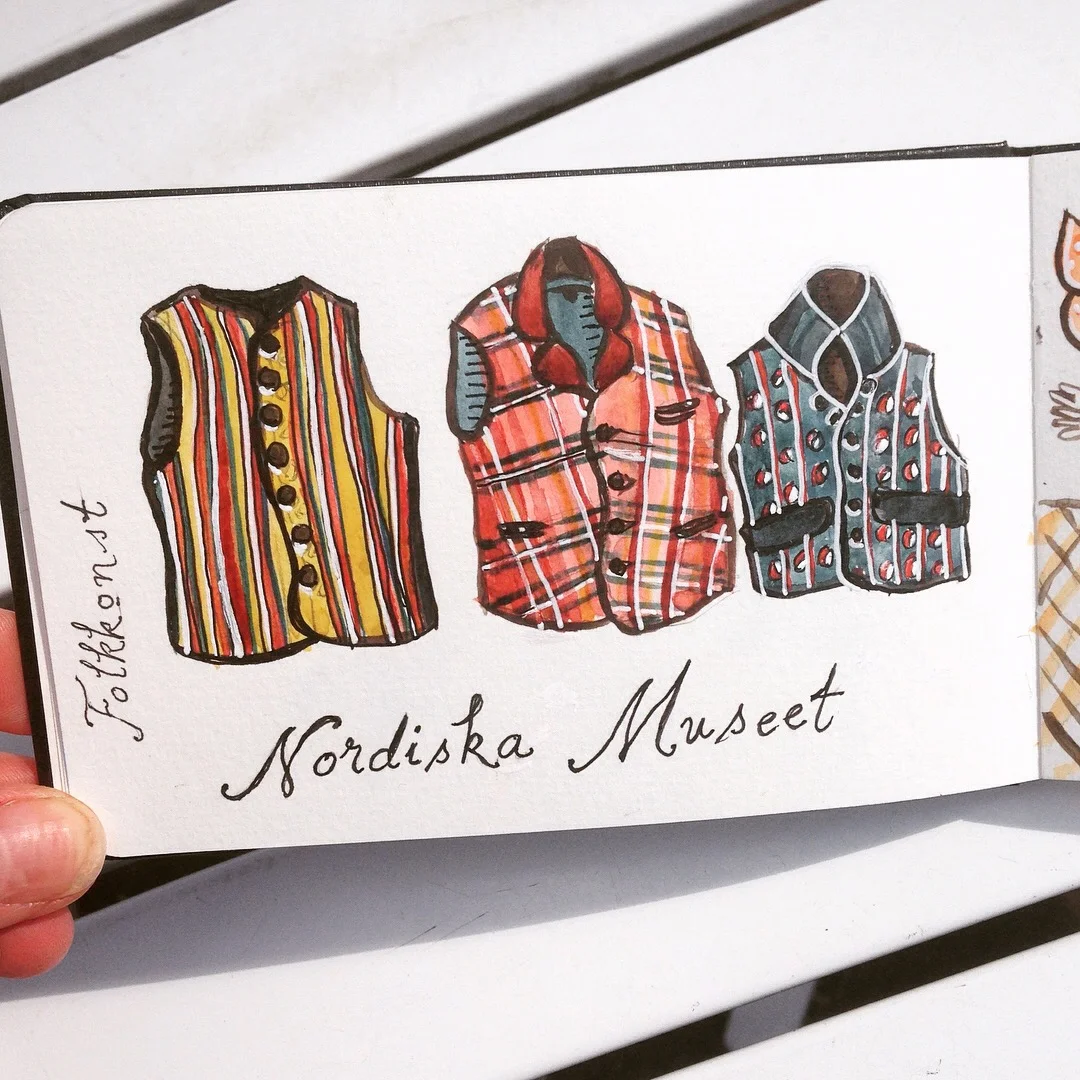 Folkkonst
Nordiska Museet